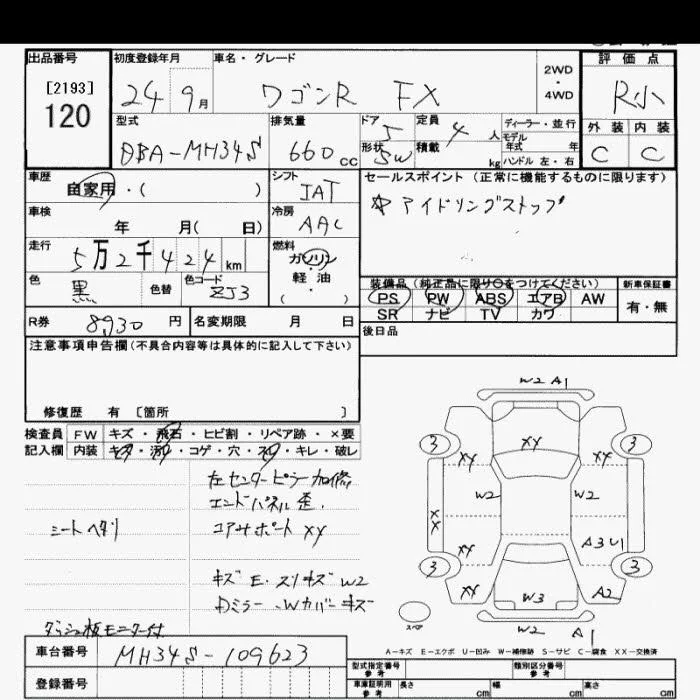 出品番号
[2193]
120
初度登録年月
24 9月
車名・グレード
ワゴンR FX
2WD
・
4WD
評価点
R小
型式
DBA-MH34S
排気量
660cc
ドア 5
形状 5W
定員 4人
積載 kg
ディーラー・並行
モデル年式 年
ハンドル 左・右
外装 内装
C C
車歴
自家用・( )
シフト
IAT
セールスポイント (正常に機能するものに限ります)
☆ アイドリングストップ
車検
年 月( 日)
冷房
AAC
走行
5万2千424km
燃料
ガソリン
・
軽油
( )
色
黒
色替
色コード
ZJ3
装備品 (純正品に限り○をつけてください)
PS PW ABS エアB AW
SR ナビ TV カワ
新車保証書
有・無
R券 8930円
名変期限 月 日
後日品
注意事項申告欄(不具合内容等は具体的に記入して下さい)
修復歴 有 [箇所 ]
検査員 FW キズ・飛石・ヒビ割・リペア跡・×要
記入欄 内装 キズ・汚れ・コゲ・穴・スレ・キレ・破レ
左センターピラー加修
エンドパネル歪.
コアサポート XY
シートヘタリ
キズ E. スリキズ W2
Dミラー.Wカバーキズ
ダッシュ板モニター付
W2 A1
3 3
XY XY XY
W2 W2
XX
XY A3 U1
3 3
XY W3 A2
スペア
W2 A1
A-キズ E-エクボ U-凹み W-補修跡 S-サビ C-腐食 XX-交換済
車台番号 MH34S-109623
登録番号
型式指定番号 参考
類別区分番号 参考
車庫証明用 参考
長さ cm
幅 cm
高さ cm